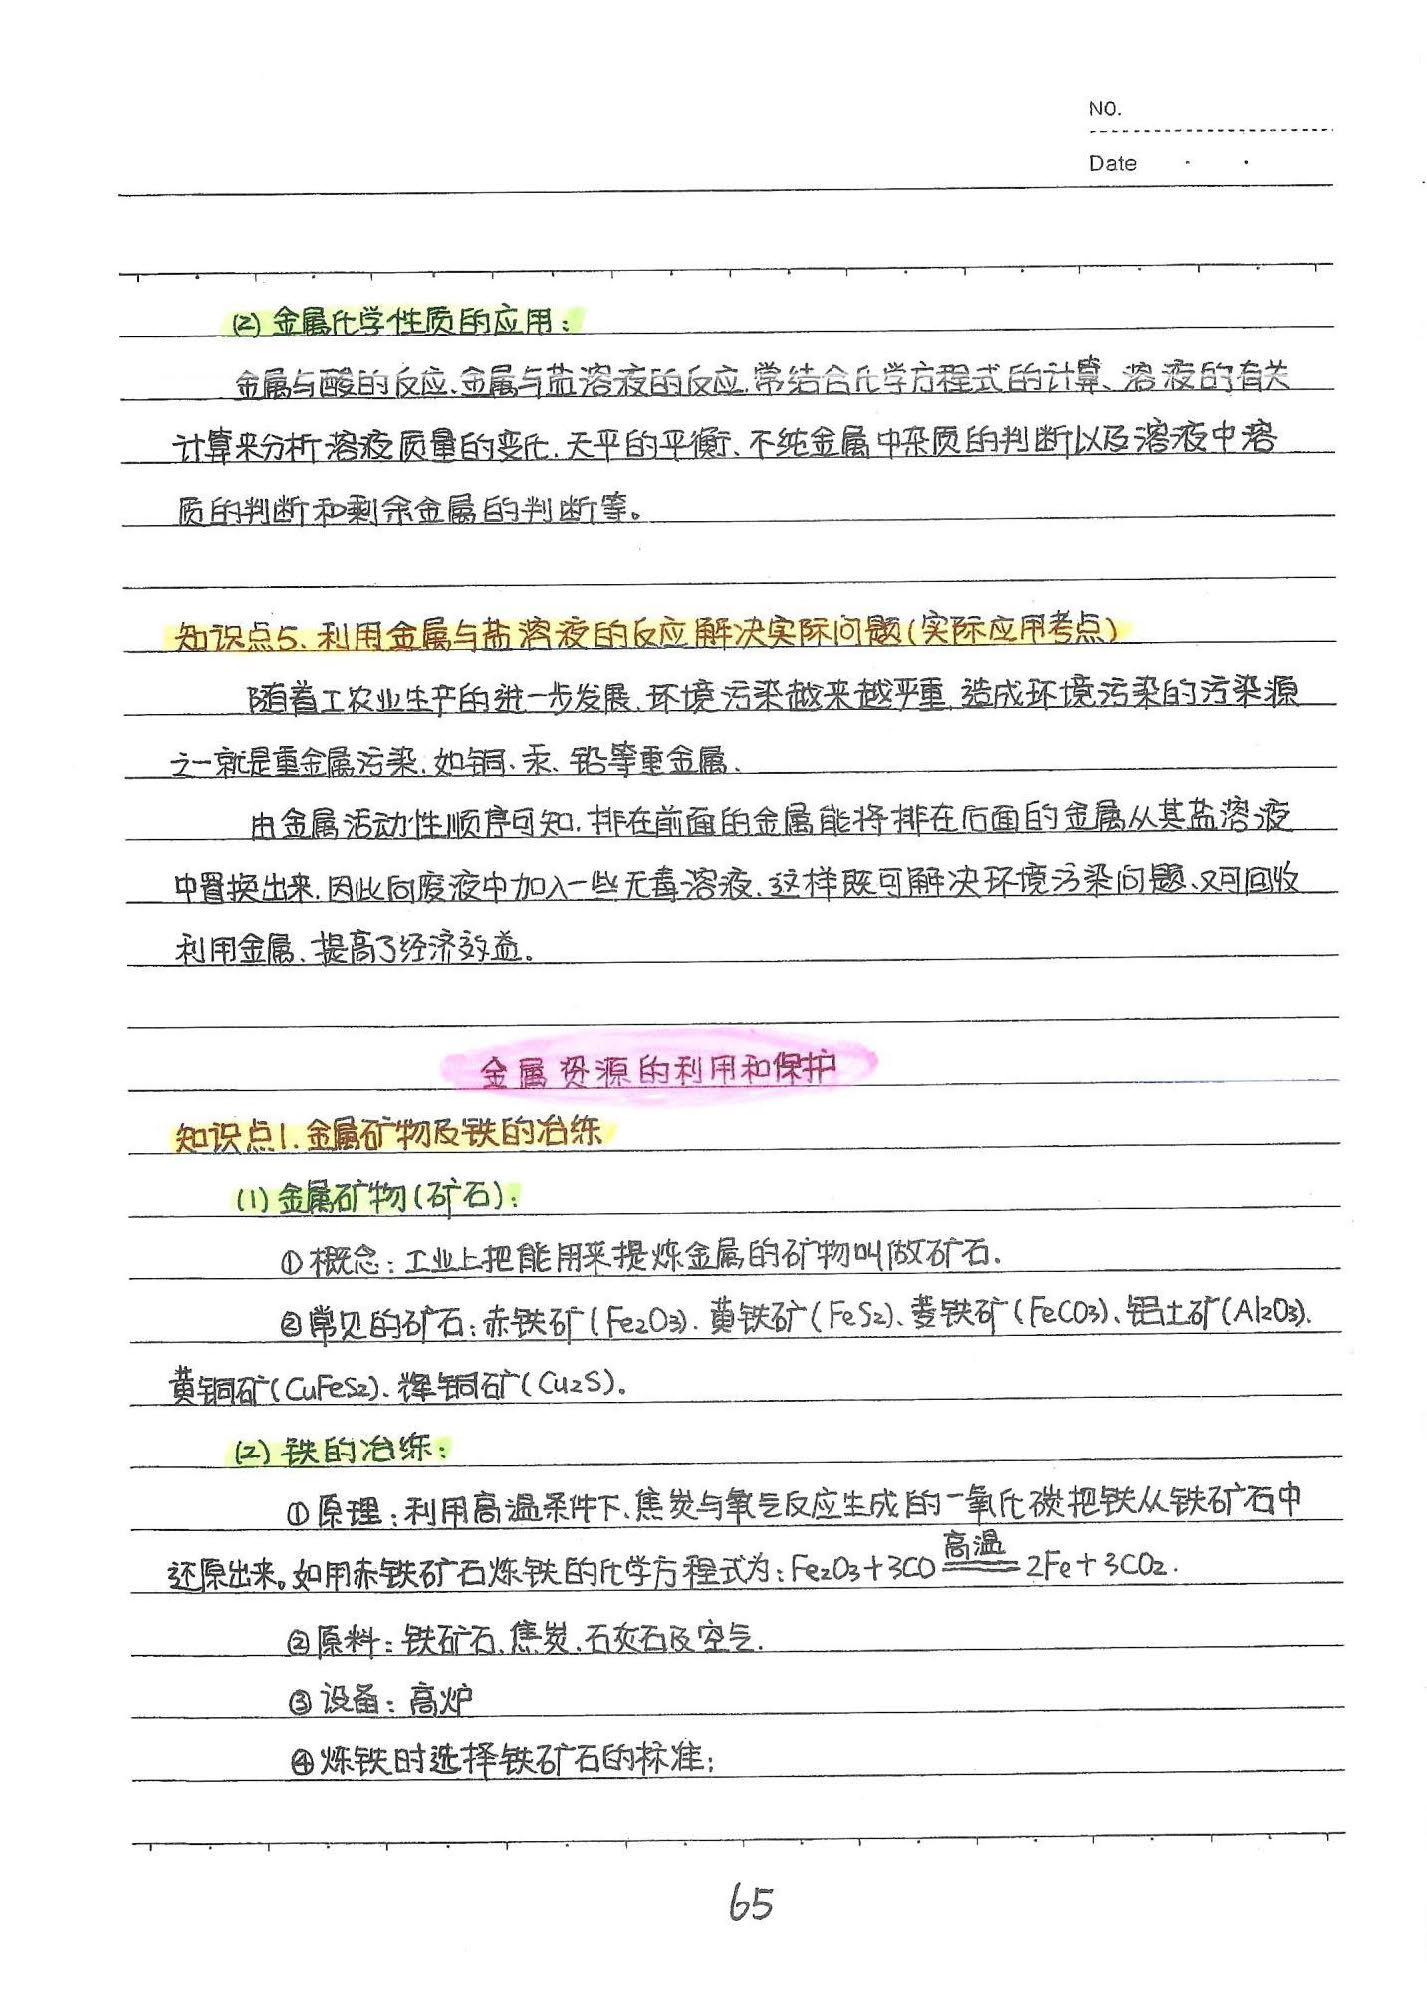 NO.
Date
(2) 金属化学性质的应用：
金属与酸的反应、金属与盐溶液的反应,常结合化学方程式的计算、溶液的有关
计算来分析溶液质量的变化、天平的平衡、不纯金属中杂质的判断以及溶液中溶
质的判断和剩余金属的判断等。
知识点5.利用金属与盐溶液的反应解决实际问题(实际应用考点)
随着工农业生产的进一步发展,环境污染越来越严重,造成环境污染的污染源
之一就是重金属污染,如铜、汞、铅等重金属.
由金属活动性顺序可知,排在前面的金属能将排在后面的金属从其盐溶液
中置换出来,因此向废液中加入一些无毒溶液,这样既可解决环境污染问题、又可回收
利用金属、提高了经济效益。
金属资源的利用和保护
知识点1.金属矿物及铁的冶练
(1) 金属矿物(矿石):
①概念：工业上把能用来提炼金属的矿物叫做矿石.
②常见的矿石：赤铁矿(Fe₂O₃)、黄铁矿(FeS₂)、菱铁矿(FeCO₃)、铝土矿(Al₂O₃)、
黄铜矿(CuFeS₂)、辉铜矿(Cu₂S)。
(2) 铁的冶练：
①原理：利用高温条件下,焦炭与氧气反应生成的一氧化碳把铁从铁矿石中
还原出来。如用赤铁矿石炼铁的化学方程式为：Fe₂O₃+3CO 高温══ 2Fe+3CO₂.
②原料：铁矿石、焦炭、石灰石及空气.
③设备：高炉
④炼铁时选择铁矿石的标准：
65